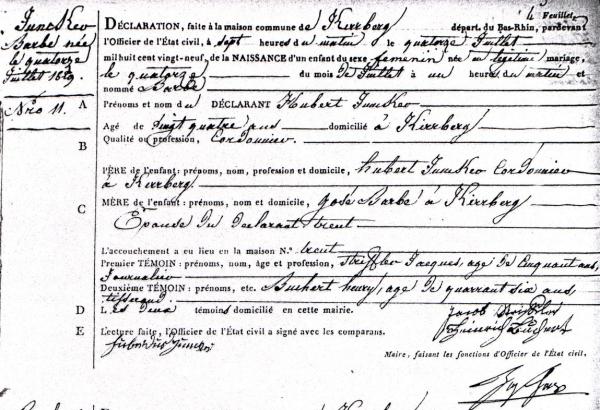 Feuillet
Juncker
Barbe née
le quatorze
Juillet 1829.
Nro 11.
DÉCLARATION, faite à la maison commune de Kirrberg
départ. du Bas-Rhin, pardevant
l'Officier de l'État civil, à sept heures du matin le quatorze Juillet
mil huit cent vingt-neuf, de la NAISSANCE d'un enfant du sexe femenin née en légitime mariage,
le quatorze du mois de Juillet à un heures du matin et
nommé Barbe
A
Prénoms et nom du DÉCLARANT Hubert Juncker
Agé de vingt quatre ans domicilié à Kirrberg
Qualité ou profession, Cordonnier
B
PÈRE de l'enfant: prénoms, nom, profession et domicile, hubert Juncker Cordonnier
à Kirrberg
C
MÈRE de l'enfant: prénoms, nom et domicile, Barbe à Kirrberg
Épouse du declarant
L'accouchement a eu lieu en la maison N.°
Premier TÉMOIN: prénoms, nom, âge et profession, Jacques, age de Cinquant ans,
Journalier
Deuxième TÉMOIN: prénoms, etc. henry, age de quarrant six ans
tisserand
D
Les deux témoins domicilié en cette mairie.
E
Lecture faite, l'Officier de l'État civil a signé avec les comparans.
Jacob
Heinrich
Maire, faisant les fonctions d'Officier de l'État civil.